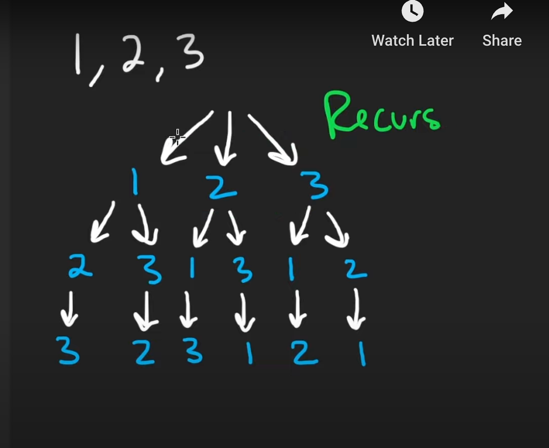 Watch Later Share
1, 2, 3
Recurs
1 2 3
2 3 1 3 1 2
3 2 3 1 2 1